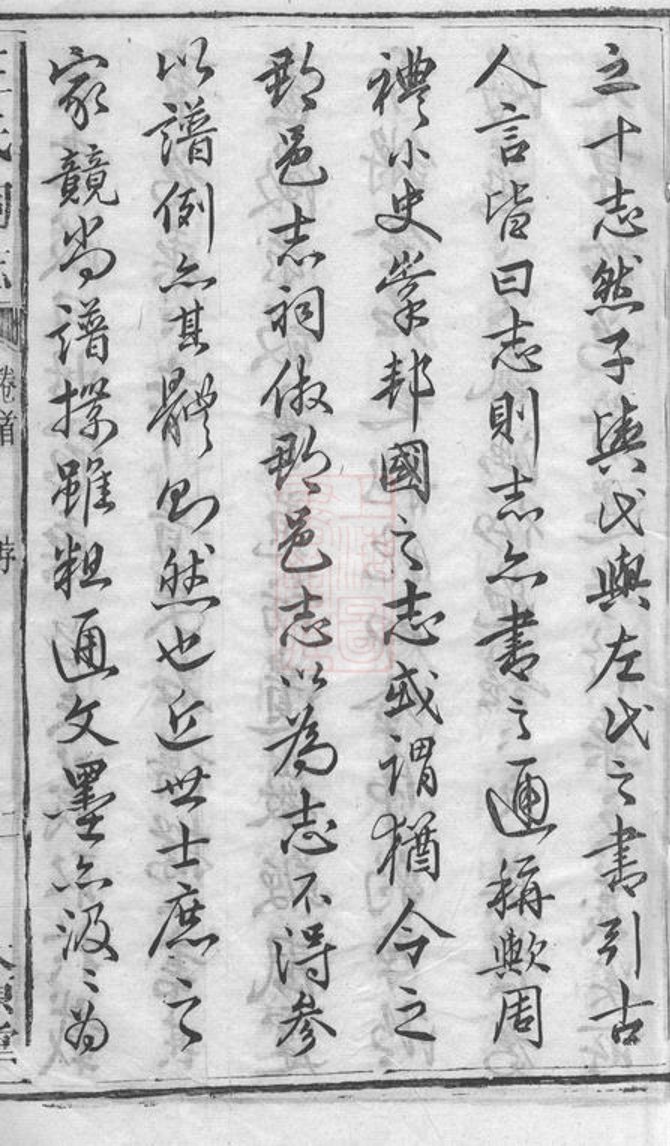 之十志然子輿氏與左氏之書引古
人言皆曰志則志亦書之通稱歟周
禮小史掌邦國之志或謂猶今之
郡邑志祠倣郡邑志以為志不得參
以譜例亦其體則然也近世士庶之
家競尚譜牒雖粗通文墨亦汲汲為
卷首 序